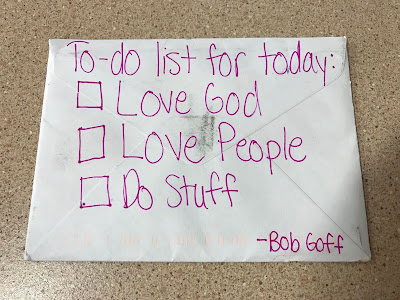 To-do list for today:
Love God
Love People
Do Stuff
-Bob Goff